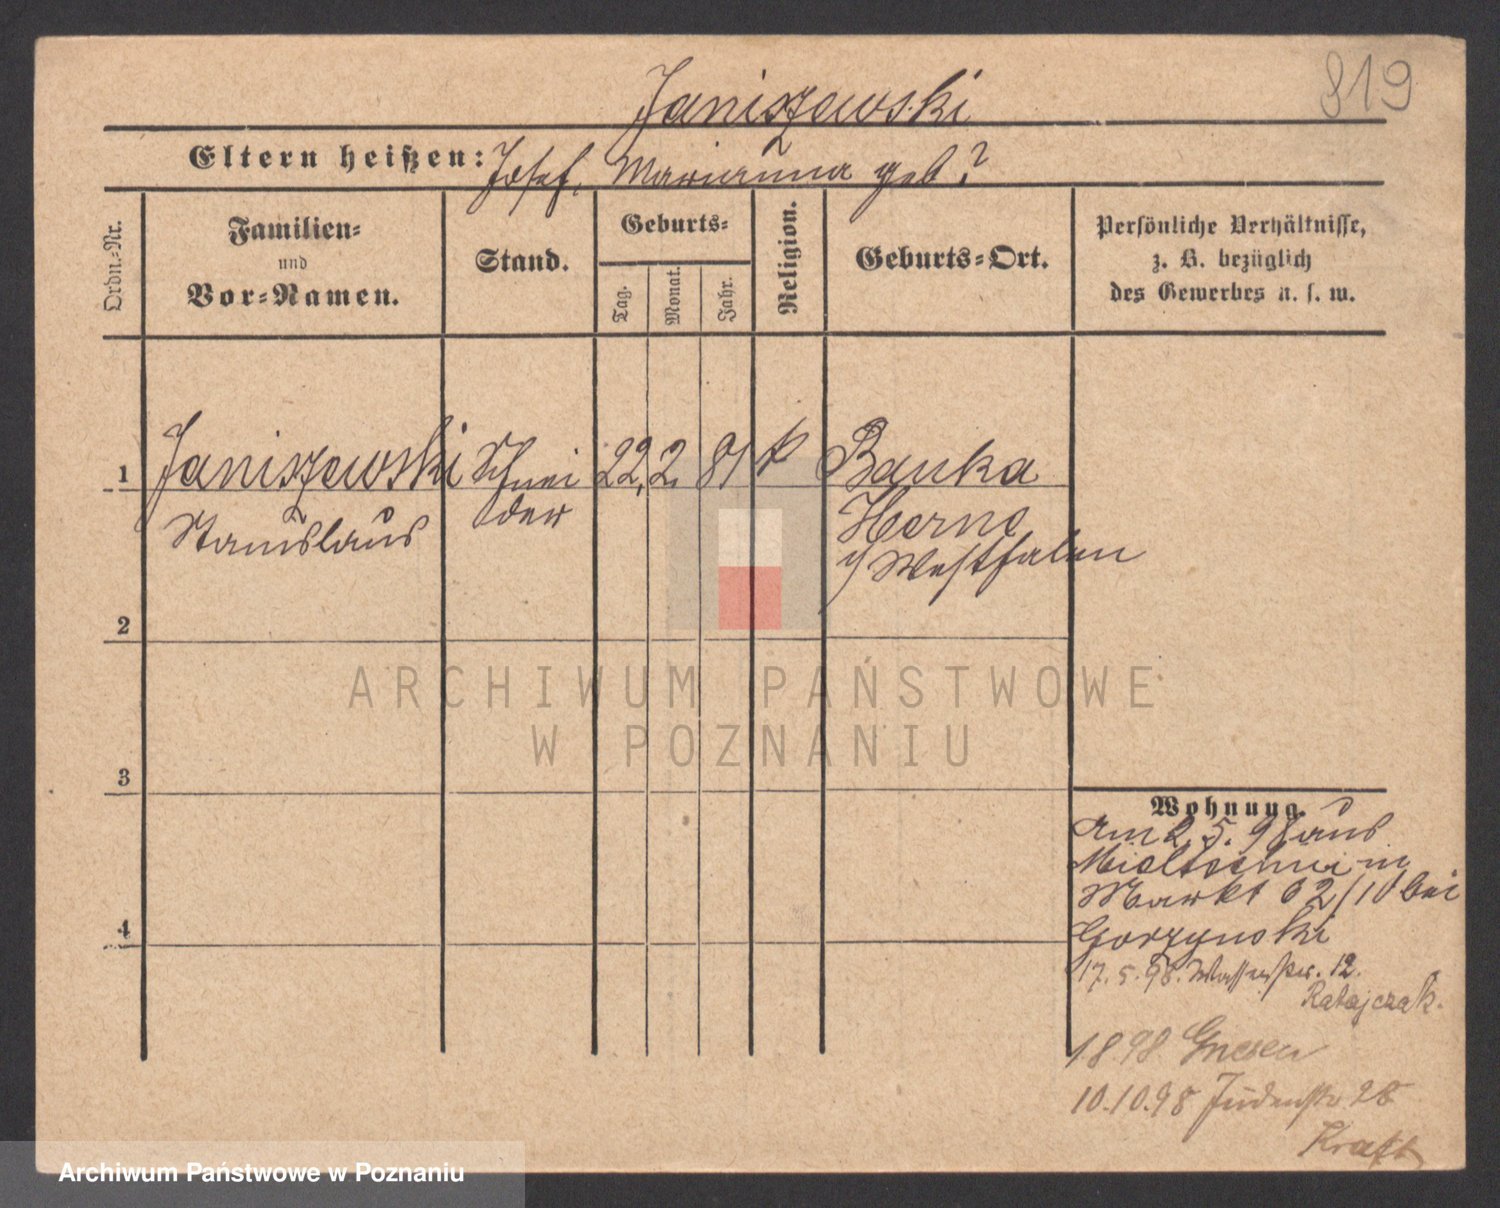 819
Janiszewski
Eltern heißen: Josef, Marianna geb?
Ordn.-Nr.
Familien-
und
Vor-Namen.
Stand.
Geburts-
Tag.
Monat.
Jahr.
Religion.
Geburts-Ort.
Persönliche Verhältnisse,
z. B. bezüglich
des Gewerbes u. s. w.
1 Janiszewski Schnei 22. 2. 81 k Baukau
Stanislaus der Herne
i/Westfalen
2
ARCHIWUM PAŃSTWOWE
W POZNANIU
3
Wohnung.
Am 2. 5. 98 aus
in
Markt 62/10 bei
Gorzynski
17. 5. 98. Wasserstr. 12.
Ratajczak.
4
1898 Gnesen
10.10.98 Judenstr 28
Kraft
Archiwum Państwowe w Poznaniu